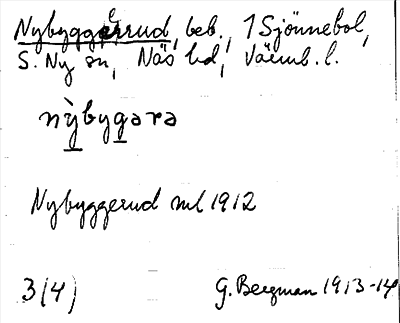 Nybyggerrud, beb., 1 Sjönnebol,
S. Ny sn, Näs hd, Värml. l.
nỳbygara
Nybyggerud ml 1912
3(4) G. Bergman 1913-14